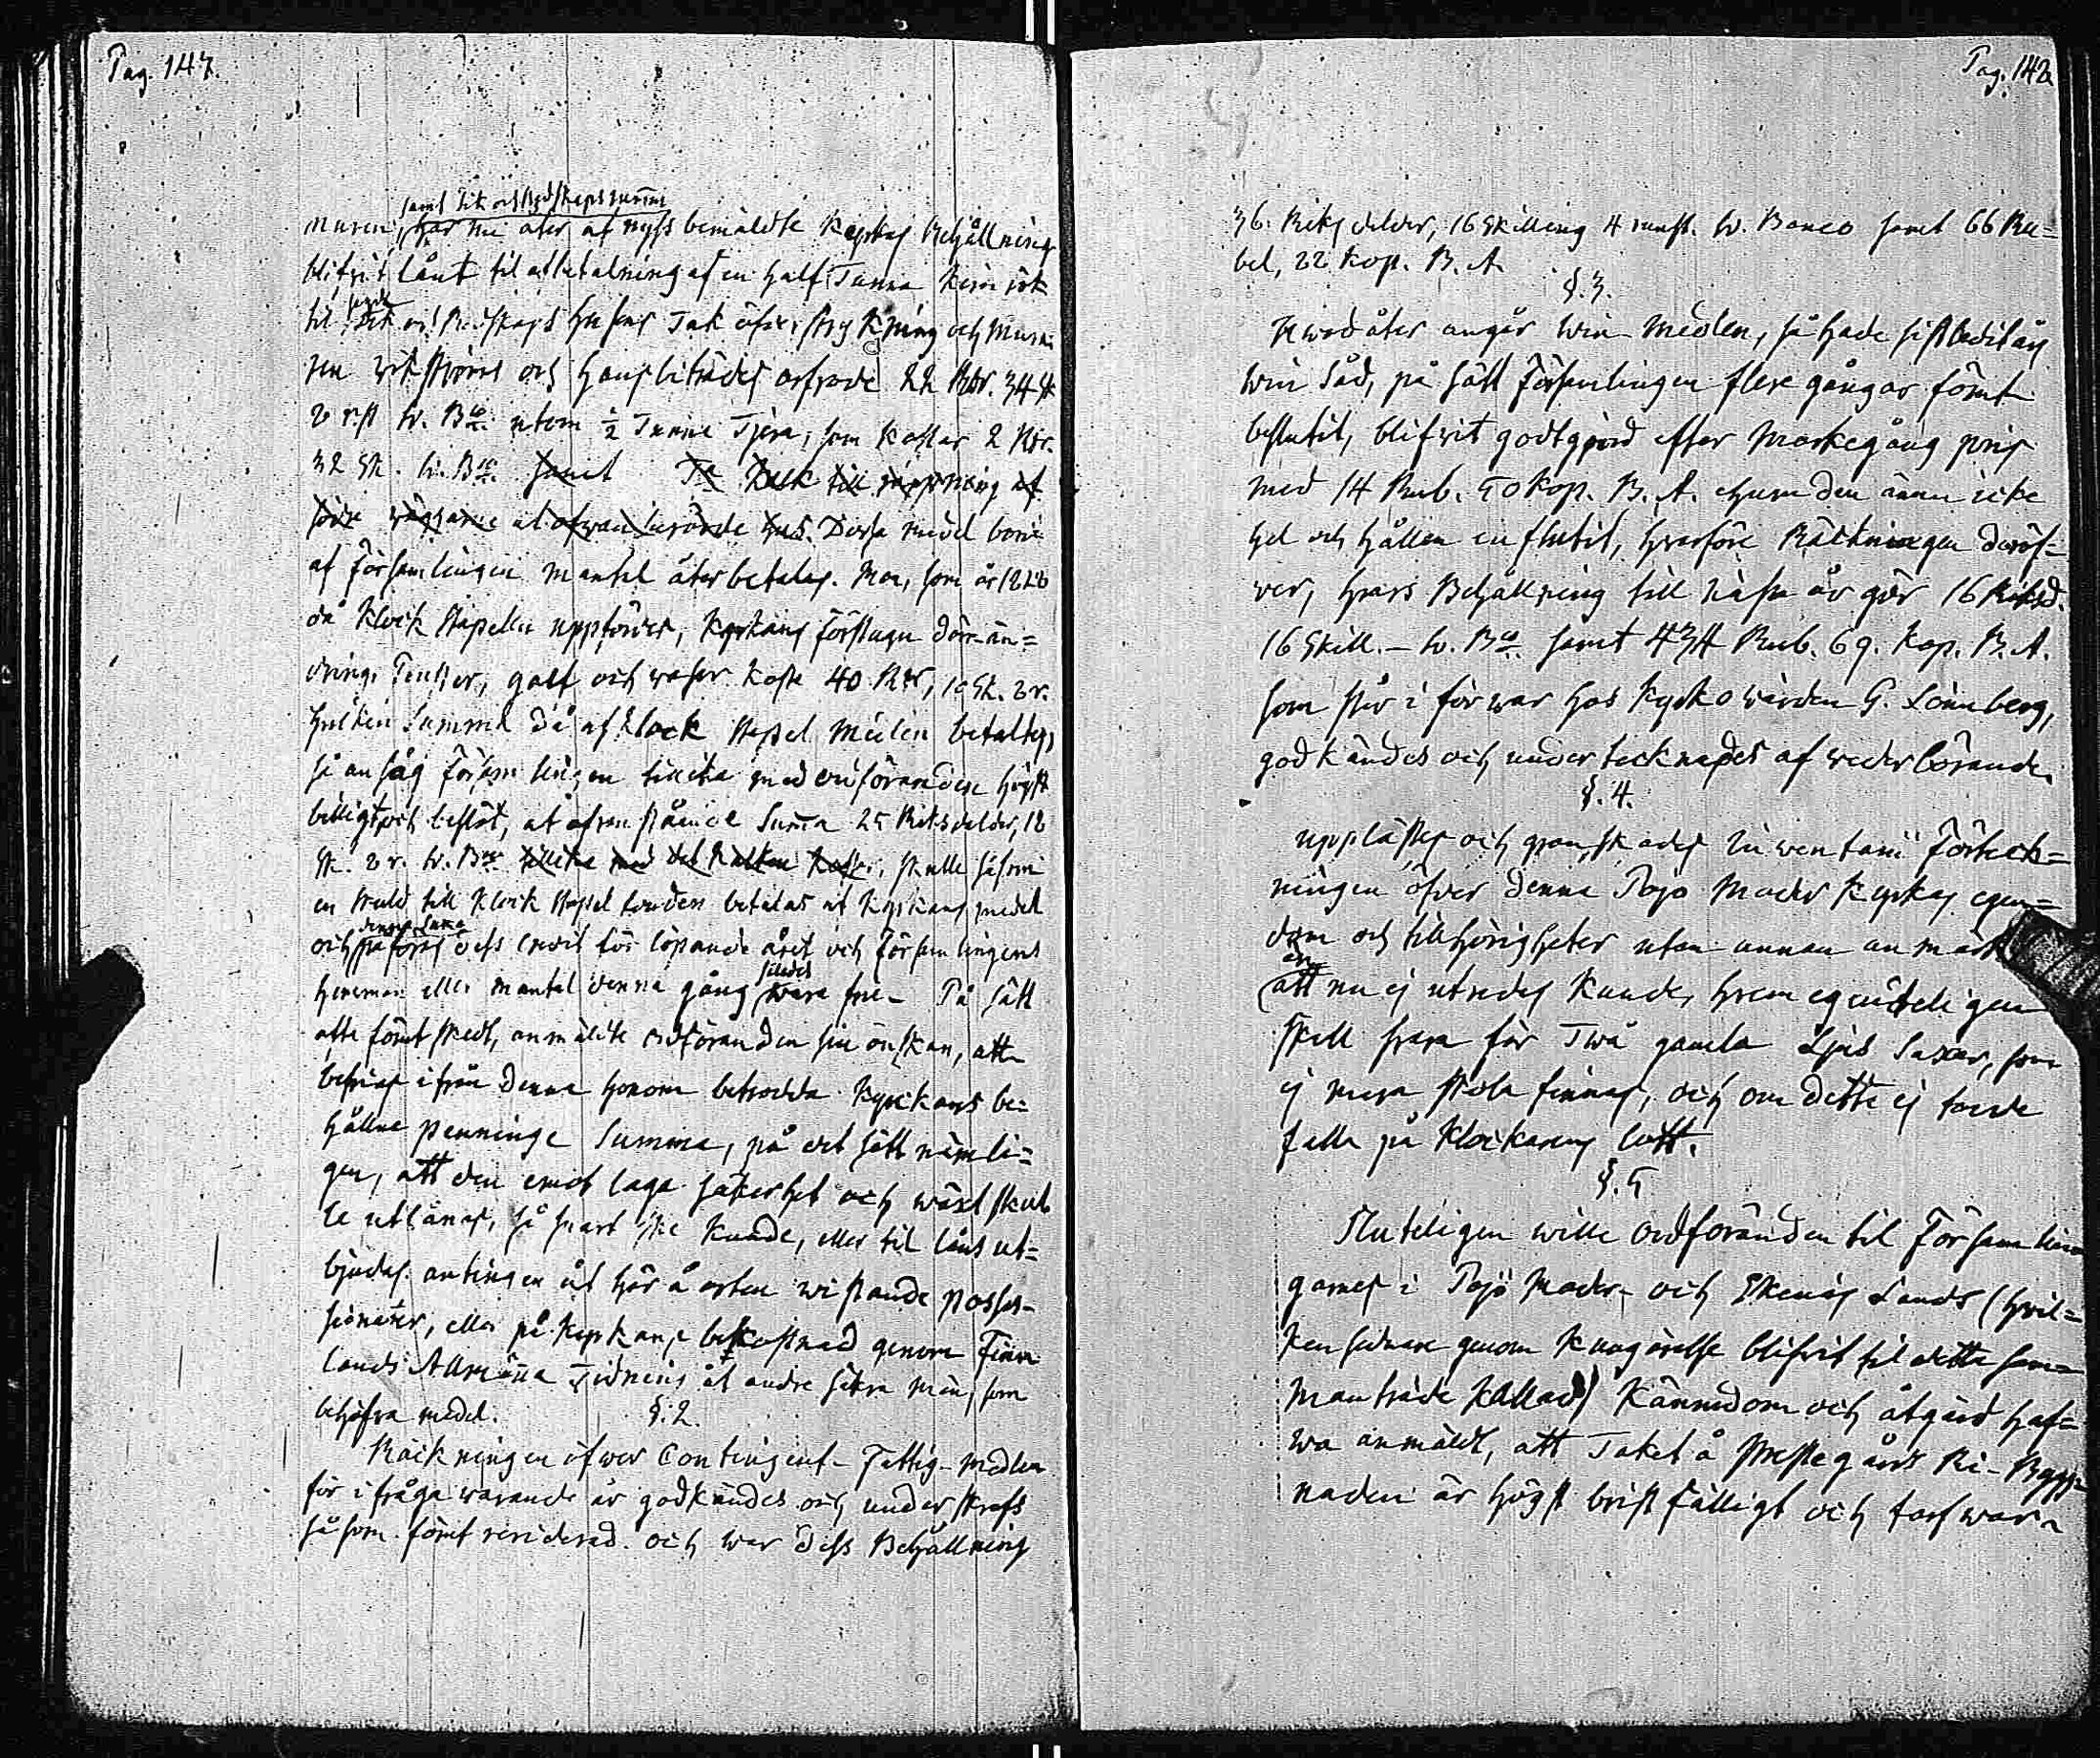 Pag. 147.
samt Lik och Redskaps
muren, har nu åter af nyss bemäldte Kyrkas Behållning
blifvit lånt til utbetalning af en half Tunna Kimrök
til Lik och Redskaps husens Tak öfverstrykning och Mura
ren och hans biträdes arfvode 22 Rdr. 34 sk
2 rst Sv. Bco. utom ½ Tunna Tjära, som kostar 2 Rdr.
32 Sk. Sv. Bco. samt Kalk till rappning af
wäggarne at ofvan berörde hus. Dessa medel borde
af Församlingen mantal återbetalas. Men, som år 1826
då Klock Stapeln uppfördes, Kyrkans förstugu dörr än=
dring, Fenster, golf och kosta 40 Rdr, 10 Sk. 2 r.
hvilken Summa då af Klock Stapel Medlen betaltes,
så ansåg Församlingen tillika med ordföranden högst
billigt, och beslöt, at ofvanstående Summa 25 Riksdaler, 18
sk. 2 r. Sv. Bco tillika med det Kalken kostar, skulle såsom
en skuld till Klock Stapel fonden betalas af Kyrkans medel
denna Suma
och påföras dess credit för löpande året och Församlingens
således
hemman eller mantal denna gång vara frie. På sätt
ofta förut skedt, anmälde ordföranden sin önskan, att
befrias ifrån denna honom betrodda Kyrkans be=
hållna penninge Summa, på det sätt nämli=
gen, att den emot laga säkerhet och wäxel skul
le utlånas, så snart ske kunde, eller til låns ut=
bjudas antingen åt här å orten wistande posses=
sionater, eller på Kyrkans bekostnad genom Finn
lands Allmänna Tidning åt andre säkra Män, som
behöfva medel.
§. 2.
Räkningen öfwer Contingent- Fattig- medlen
för ifråga warande år godkändes och underskrefs
såsom förut reviderad och war dess Behållning
Pag. 148
36. Riksdaler, 16 Skilling 4 runst. Sv. Banco samt 66 Ru=
bel, 22 Kop. B. A.
§. 3.
Hwad åter angår win-Medlen, så hade sistledit års
win Såd, på sätt Församlingen flere gångor förut
beslutit, blifvit godtgjord efter Markegång pris
med 14 Rub. 50 Kop. B. A. ehuru den ännu icke
hel och hållen influtit, hvarföre Räkningen deröf=
ver, hvars Behållning till nästa år gör 16 Riksd.
16 Skill. - Sv. Bco. samt 434 Rub. 69. Kop. B. A.
som står i förwar hos Kyrkowärden G. Lönnberg,
godkändes och undertecknades af wederbörande.
§. 4.
upplästes och granskades Inwentarii Förteck=
ningen öfver denna Pojo Moder Kyrkas egen=
dom och tillhörigheter utan annan anmärk
än
att nu ej utredas kunde, hvem egenteligen
skall svara för Twå gamla Ljus Saxar, som
ej mera skola finnas, och om dette ej torde
falla på Klockarens lott.
§. 5
Sluteligen wille ordföranden til Församlin
garnes i Pojo Moder- och Ekenäs Lands (hvil=
ken sednare genom Kungörelse blifvit til detta sam=
manträde kallad) Kännedom och åtgärd haf=
wa anmäldt, att Taket å Prestegårds Ri-Bygg=
naden är högst bristfälligt och tarfwar